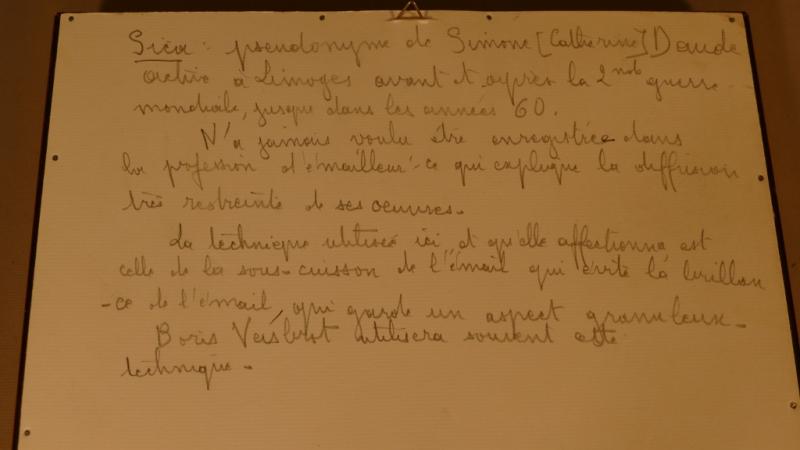 Sica : pseudonyme de Simone [Catherine] Daude
active à Limoges avant et après la 2nde guerre
mondiale, jusque dans les années 60.
N'a jamais voulu être enregistrée dans
la profession d'émailleur - ce qui explique la diffusion
très restreinte de ses oeuvres.
La technique utilisée ici, et qu'elle affectionna est
celle de la sous-cuisson de l'émail qui évite la brillan
-ce de l'émail, qui garde un aspect granuleux.
Boris Veisbrot utilisera souvent cette
technique.